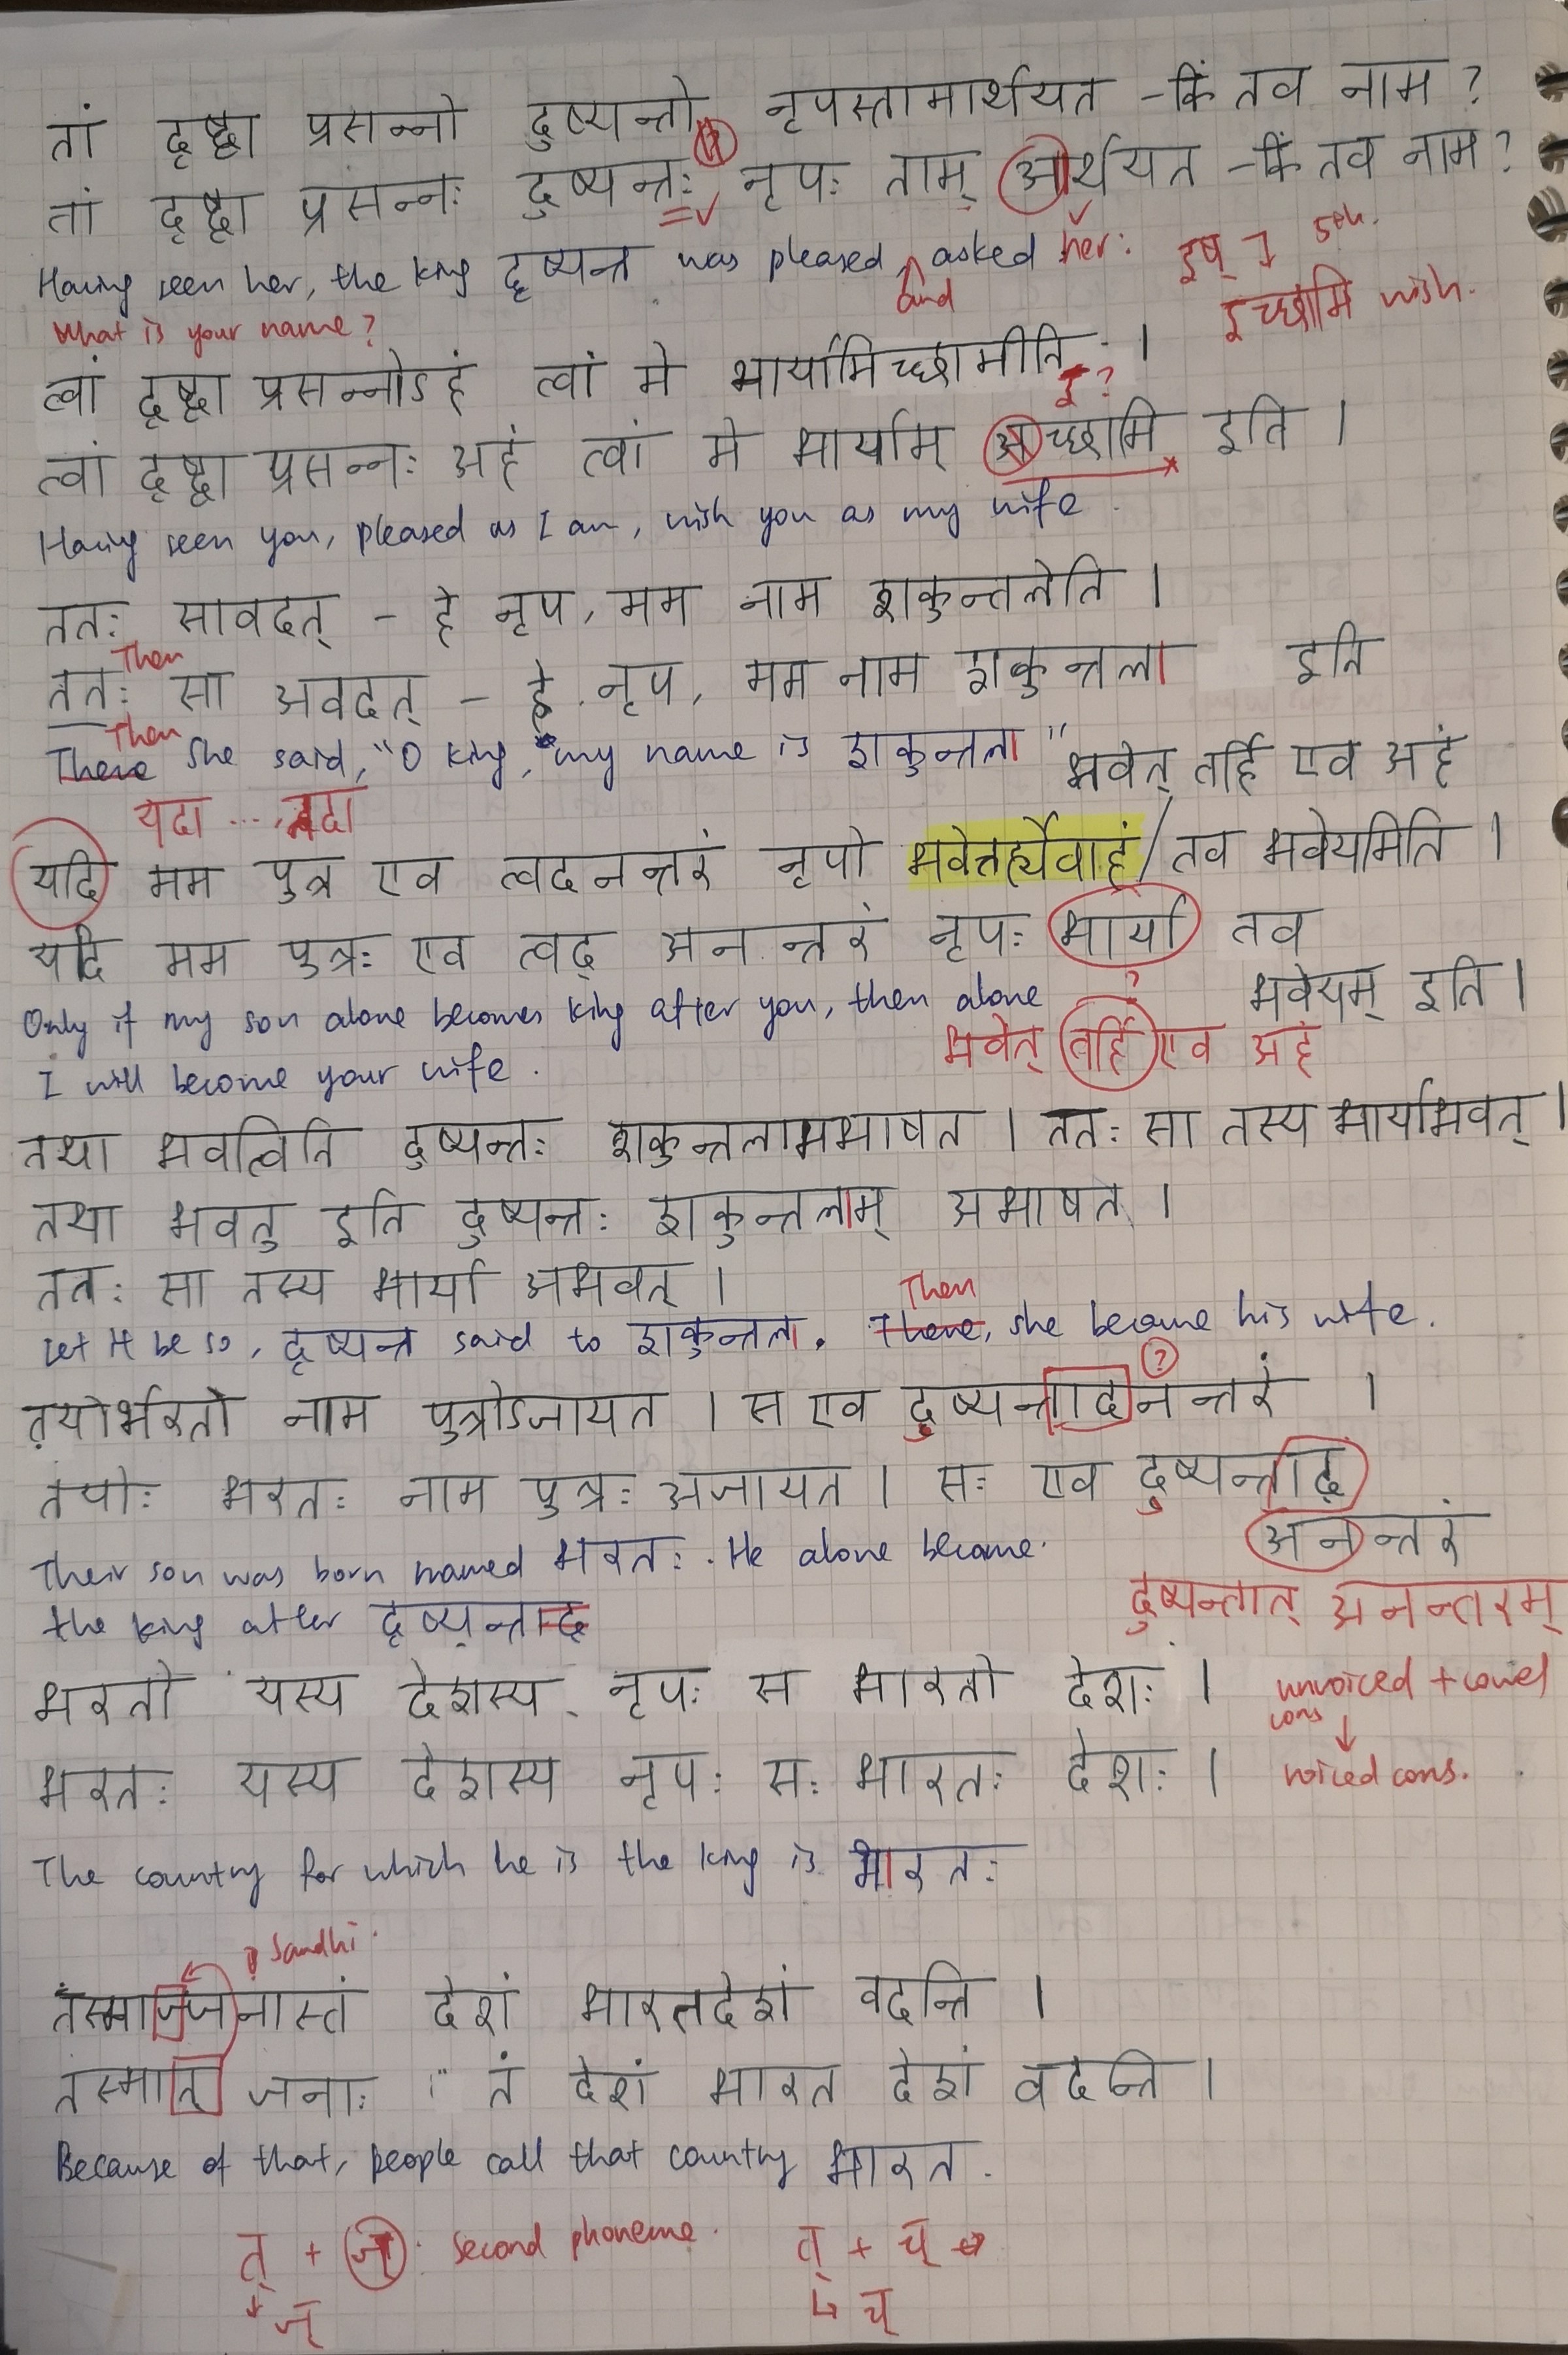 तां दृष्ट्वा प्रसन्नो दुष्यन्तो नृपस्तामार्थयत - किं तव नाम ?
तां दृष्ट्वा प्रसन्नः दुष्यन्तः नृपः ताम् आर्थयत - किं तव नाम ?
Having seen her, the king दृष्यन्त was pleased and asked her:
इष्
इच्छामि wish.
What is your name?
त्वां दृष्ट्वा प्रसन्नोऽहं त्वां मे भार्यामिच्छामीति ।
इ?
त्वां दृष्ट्वा प्रसन्नः अहं त्वां मे भार्याम् अच्छामि इति ।
Having seen you, pleased as I am, wish you as my wife.
ततः सावदत् - हे नृप, मम नाम शकुन्तलेति ।
Then
ततः सा अवदत् - हे नृप, मम नाम शकुन्तला इति
Then
There she said, "O king, my name is शकुन्तला"
भवेत् तर्हि एव अहं
यदा ... तदा
यदि मम पुत्र एव त्वदनन्तरं नृपो भवेत्तर्ह्येवाहं / तव भवेयमिति ।
यदि मम पुत्रः एव त्वद् अनन्तरं नृपः भार्या तव
भवेयम् इति ।
Only if my son alone becomes king after you, then alone
?
भवेत् तर्हि एव अहं
I will become your wife.
तथा भवत्विति दुष्यन्तः शकुन्तलामभाषत । ततः सा तस्य भार्याभवत् ।
तथा भवतु इति दुष्यन्तः शकुन्तलाम् अभाषत ।
ततः सा तस्य भार्या अभवत् ।
Then
Let it be so, दृष्यन्त said to शकुन्तला. There, she became his wife.
?
तयोर्भरतो नाम पुत्रोऽजायत । स एव दुष्यन्तादनन्तरं ।
तयोः भरतः नाम पुत्रः अजायत । सः एव दुष्यन्ताद्
अनन्तरं
Their son was born named भरतः. He alone became
the king after दृष्यन्ताद्
दुष्यन्तात् अनन्तरम्
भरतो यस्य देशस्य नृपः स भारतो देशः ।
unvoiced + vowel
cons ↓
भरतः यस्य देशस्य नृपः सः भारतः देशः ।
voiced cons.
The country for which he is the king is भारतः
Sandhi
तस्माज्जनास्तं देशं भारतदेशं वदन्ति ।
तस्मात् जनाः तं देशं भारत देशं वदन्ति ।
Because of that, people call that country भारत.
त् + ज् : second phoneme.
↓ ज्
त् + च् →
↳ च्